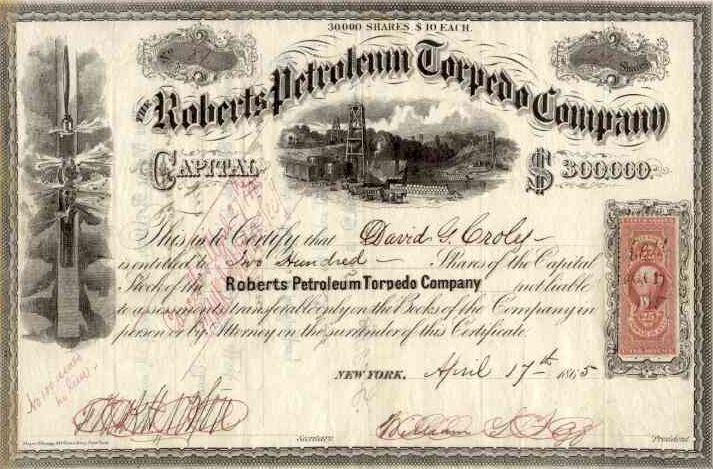 30000 SHARES $10 EACH.
No
Shares
THE Roberts Petroleum Torpedo Company
CAPITAL $300.000.
This is to Certify that David G. Croly
is entitled to Two Hundred Shares of the Capital
Stock of the Roberts Petroleum Torpedo Company not liable
to assessments transferable only on the Books of the Company in
person or by Attorney on the surrender of this Certificate.
25
NEW YORK. April 17th 1865
Secretary
President